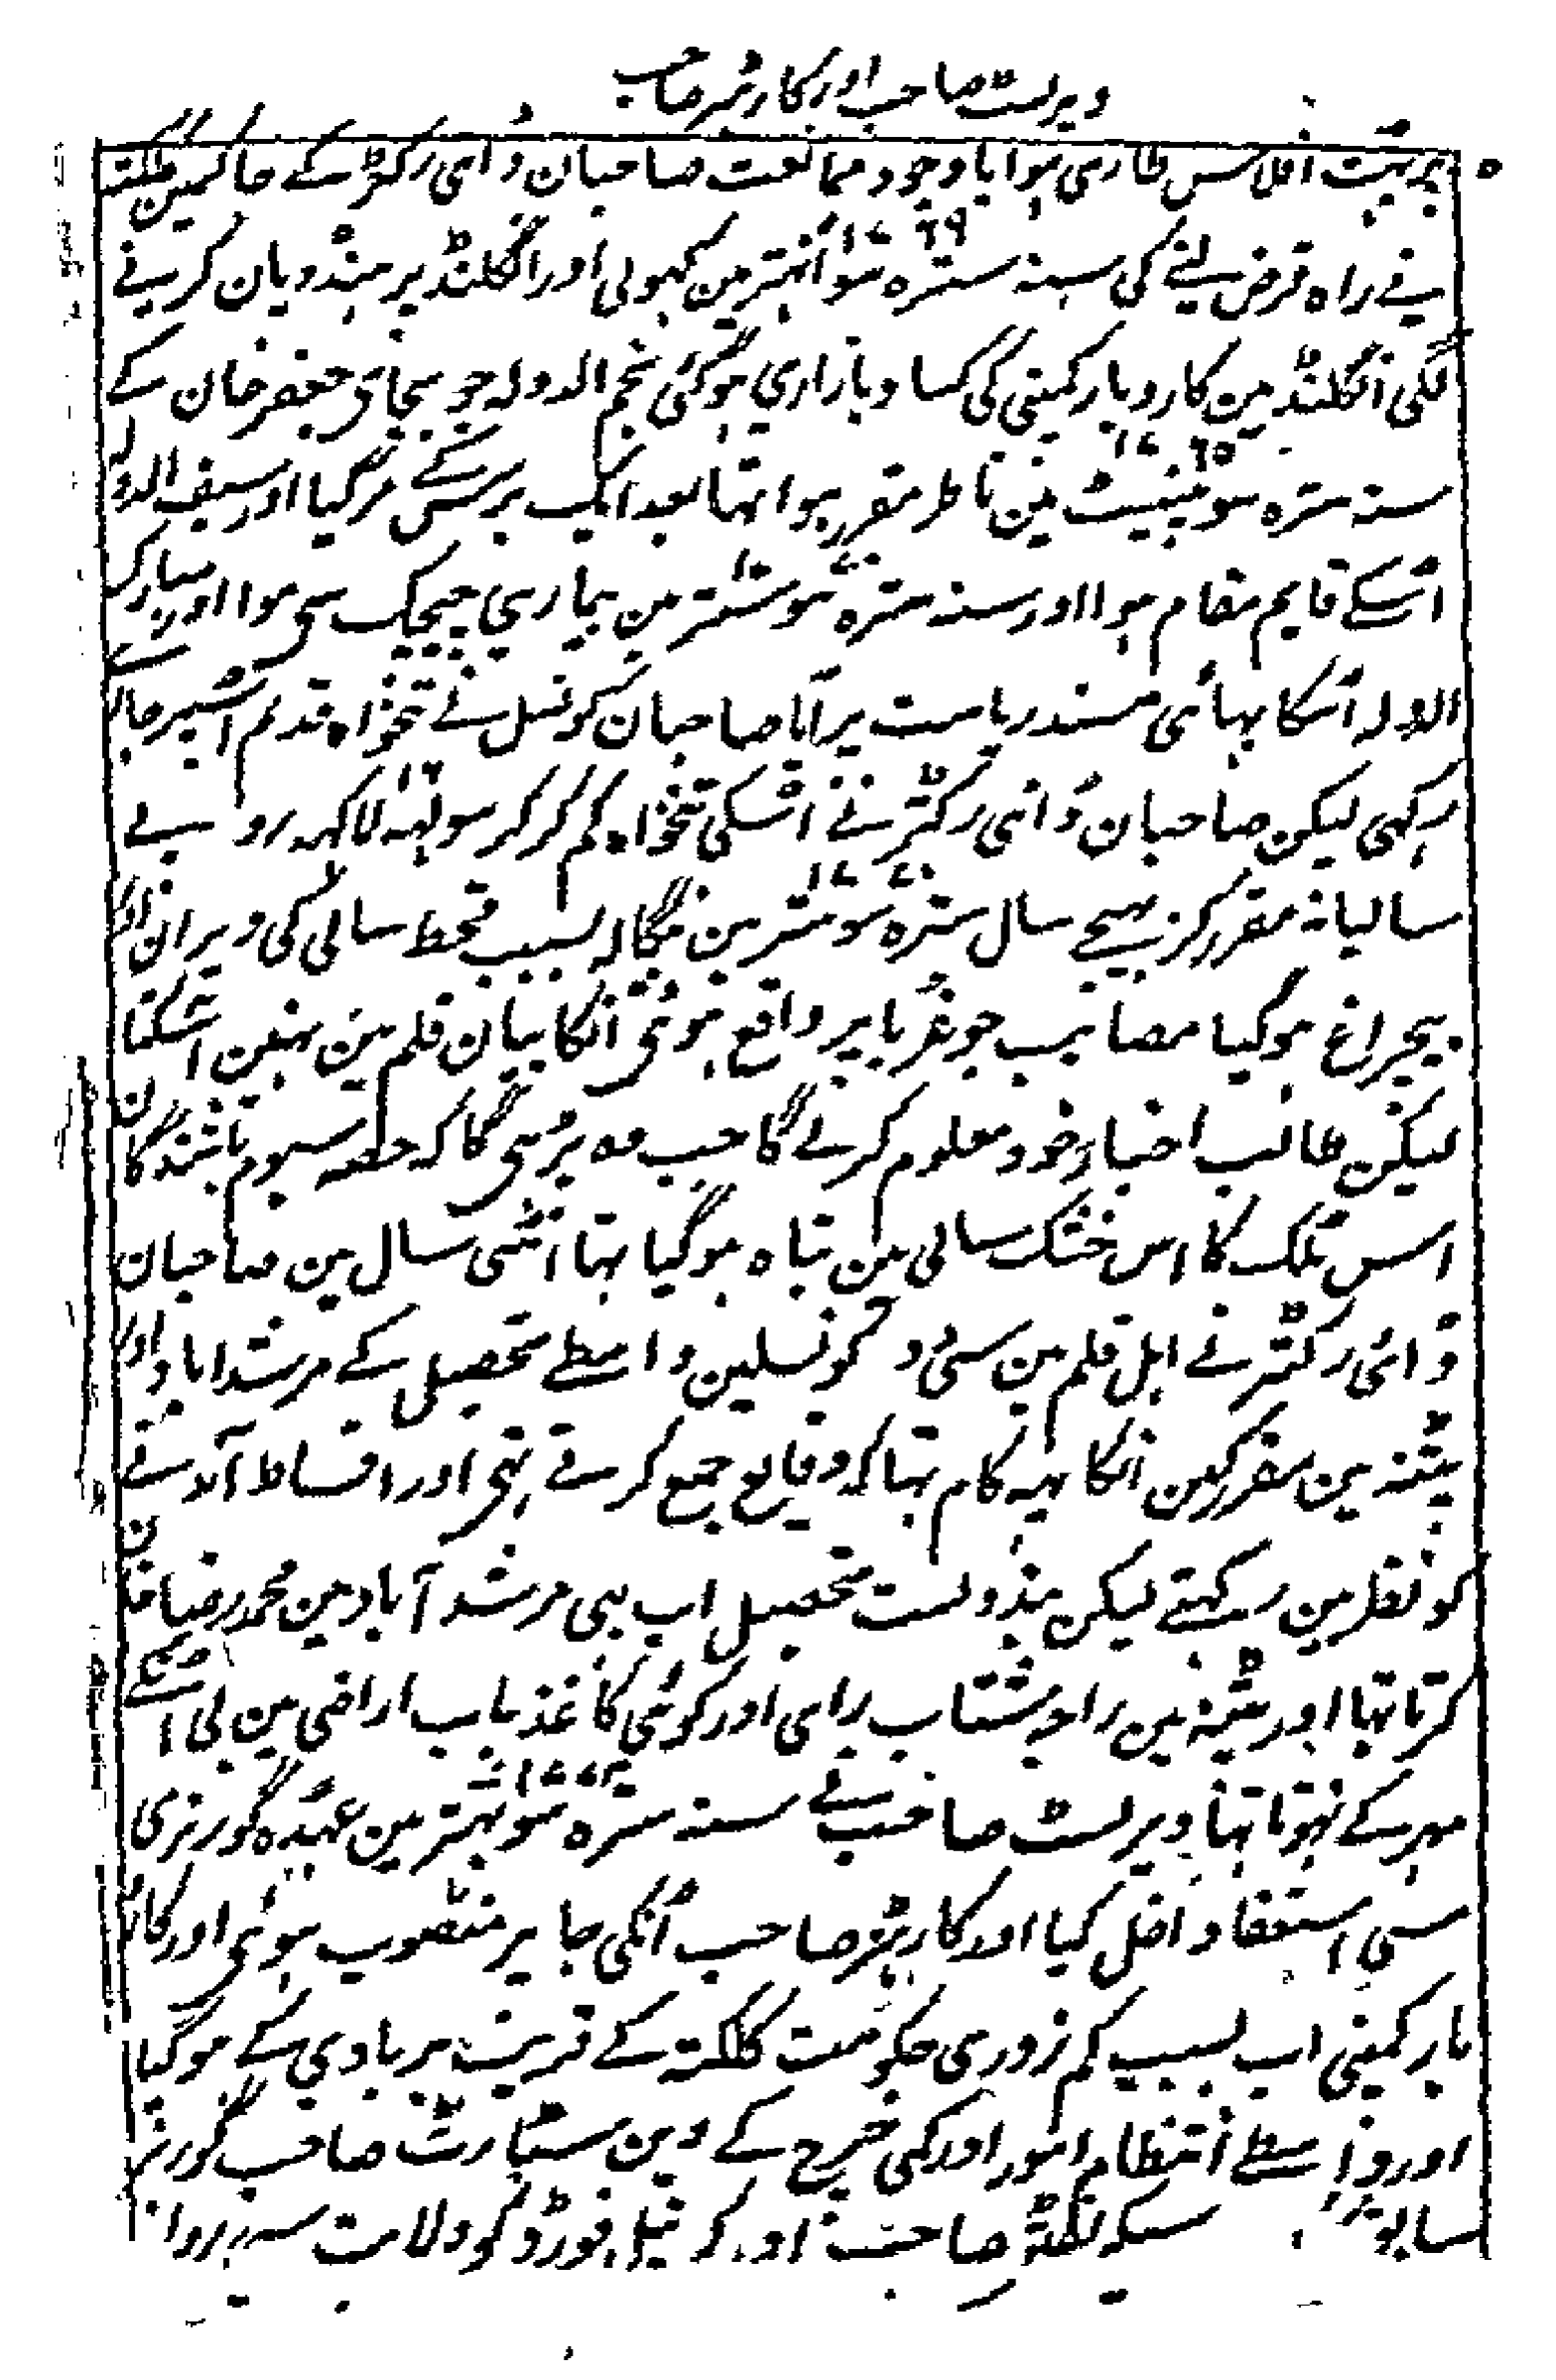 ویرلسٹ صاحب اور کارٹیر صاحب
بدرجۂ افلاس طاری ہوا باوجود ممانعت صاحبان ڈائی رکٹر کے حاکمین کلکتہ
نے راہ قرض لینے کی سنہ سترہ سو اُنہتر ۱۷۶۹ مین کہولی اور انگلنڈ پر ہنڈویان کرینے
لگی انگلنڈ مین کاروبار کمپنی کی کساد بازاری ہوگئی نجم الدولہ جو بجای جعفر خان کے
سنہ سترہ سو پینسٹ ۱۷۶۵ مین ناظر مقرر ہوا تہا بعد ایک برس کے مرگیا اور سیف الدولہ
اُسکے قایم مقام ہوا اور سنہ سترہ سو ستر ۱۷۷۰ مین بیماری چیچک سی موا اور مبارک
الدولہ اُسکا بہائی مسند ریاست پر آیا صاحبان کونسل نے تنخواہ قدیم اُسپر بحال
رکہی لیکن صاحبان ڈائی رکٹر نے اُسکی تنخواہ کم کر کر سولہہ ۱۶ لاکہہ روپے
سالیانہ مقرر کر بہیجے سال سترہ سو ستر ۱۷۷۰ مین بنگالہ بسبب قحط سالی کی ویران اور
بیچراغ ہوگیا مصایب جو غربا پر واقع ہوئی اُنکا بیان قلم مین نہین آسکتا
لیکن طالب اخبار خود معلوم کرلے گا جب وہ پڑہی گا کہ حصہ سیوم باشندگان
اس ملک کا اس خشک سالی مین تباہ ہوگیا تہا اُسی سال مین صاحبان
ڈائی رکٹر نے اہل قلم مین سی دو کونسلین واسطے تحصیل کے مرشداباد اور
پٹنہ مین مقرر کین اُنکا یہہ کام تہا کہ وقایع جمع کرتے تہی اور اقساط آمدنے
کو نظر مین رکہتے لیکن بندوبست تحصیل اب بہی مرشدآباد مین محمد رضا خان
کرتا تہا اور پٹنہ مین راجہ شتاب رای اور کوئی کاغذ باب اراضی مین بی اُسکے
مہر کے نہوتا تہا ویرلسٹ صاحب نے سنہ سترہ سو بہتر ۱۷۷۲ مین عہدہ گورنری
سی استعفا داخل کیا اور کارٹیر صاحب اُنکی جا پر منصوب ہوئی اور کارو
بار کمپنی اب بسبب کم زوری حکومت کلکتہ کے قریب بربادی کے ہوگیا
اور واسطے انتظام امور اور کمی خرچ کے وین سٹارٹ صاحب گورنر
سابق سیکرافٹن صاحب اور کرنیل فورڈ کو ولایت سے روانہ